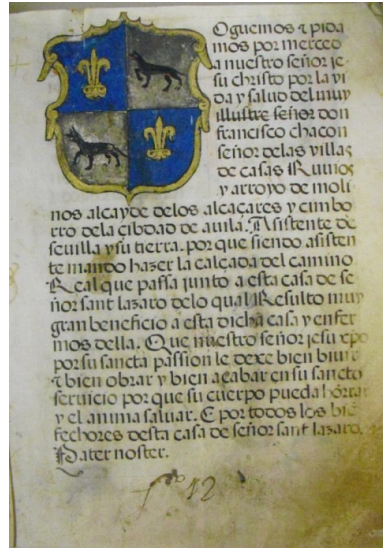 Oguemos τ pida
mos por merced
a nuestro señor je-
su christo por la vi
da y salud del muy
illustre señor don
francisco chacon
señor delas villas
de casas Ruuios
y arroyo de moli
nos alcayde delos alcaçares y cimbo
rro dela çibdad de auila. Asistente de
seuilla y su tierra. por que siendo asisten
te mando hazer la calçada del camino
Real que passa junto a esta casa de se
ñor sant lazaro delo qual Resulto muy
gran beneficio a esta dicha casa y enfer
mos della. Que nuestro señor jesu xpo
por su sancta passion le dexe bien biuir
τ bien obrar y bien acabar en su sancto
seruicio por que su cuerpo pueda hõrrar
y el anima saluar. E por todos los biẽ
fechores desta casa de señor sant lazaro.
Pater noster.
fº 12